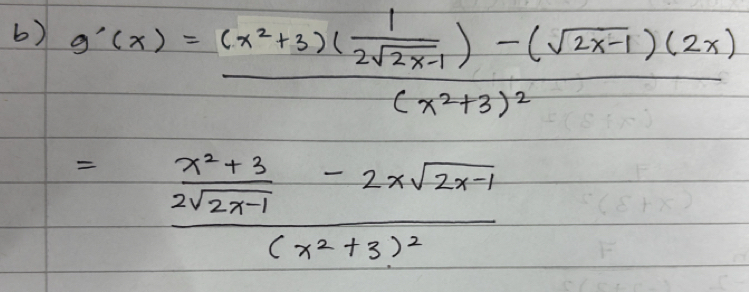 b) g'(x) = (x²+3)(1/(2√(2x-1))) - (√(2x-1))(2x) / (x²+3)²
= (x²+3)/(2√(2x-1)) - 2x√(2x-1) / (x²+3)²